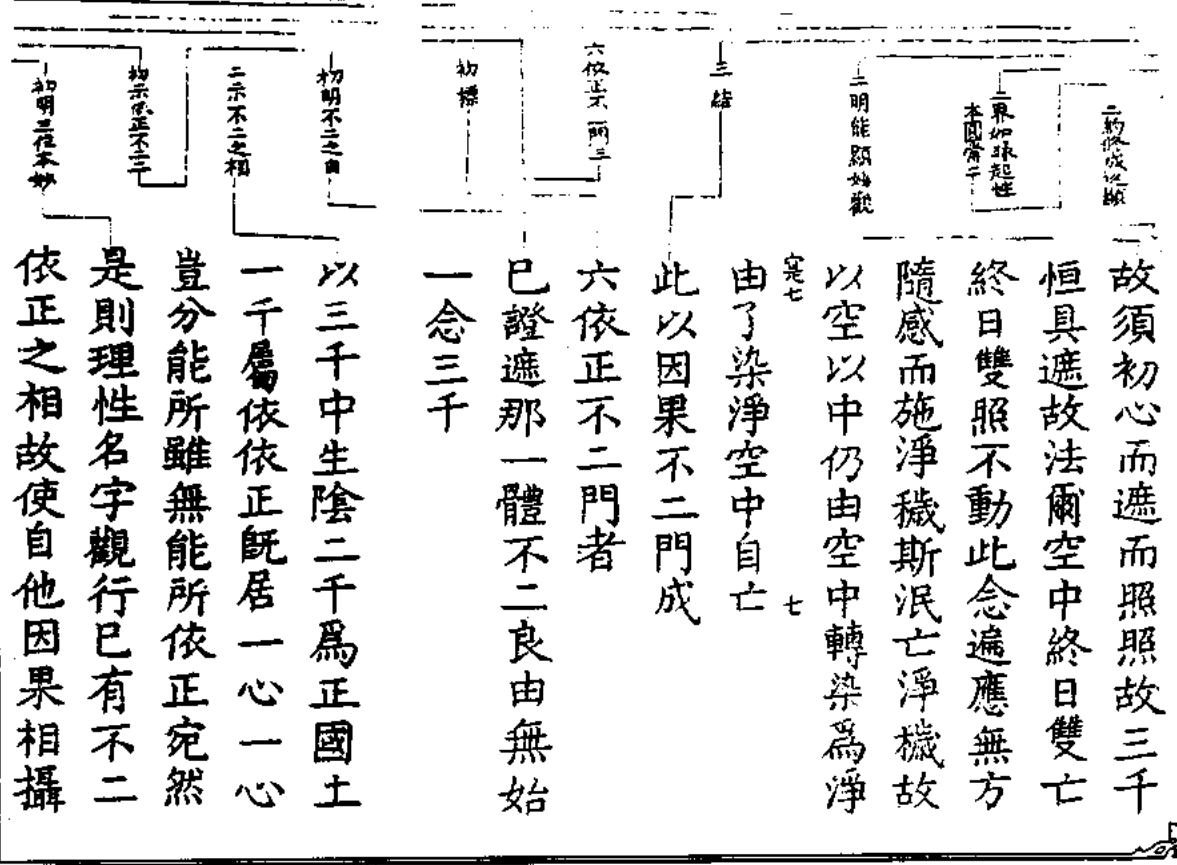 二約修成遮照
二界如緣起性
本圓常二
二明能顯妙觀
三結
六依正不二門三
初標
初明不二之由
二示不二之相
初示依正不二二
初明三位本妙
故須初心而遮而照照故三千
恒具遮故法爾空中終日雙亡
終日雙照不動此念遍應無方
隨感而施淨穢斯泯亡淨穢故
以空以中仍由空中轉染爲淨
寔七 七
由了染淨空中自亡
此以因果不二門成
六依正不二門者
已證遮那一體不二良由無始
一念三千
以三千中生陰二千爲正國土
一千屬依依正旣居一心一心
豈分能所雖無能所依正宛然
是則理性名字觀行已有不二
依正之相故使自他因果相攝